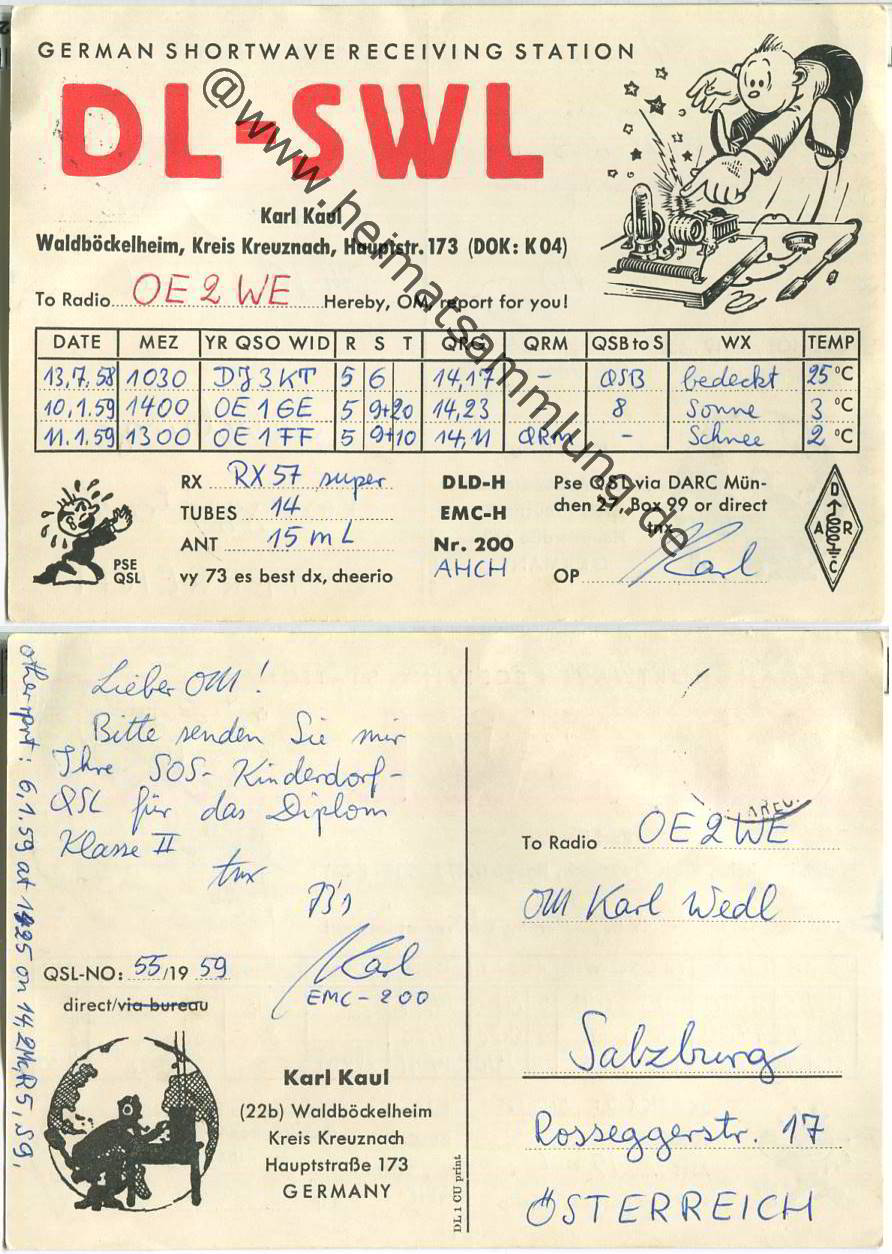 GERMAN SHORTWAVE RECEIVING STATION
DL-SWL
@www.heimatsammlung.de
Karl Kaul
Waldböckelheim, Kreis Kreuznach, Hauptstr. 173 (DOK: K 04)
To Radio OE 2 WE Hereby, OM, report for you!
DATE MEZ YR QSO WID R S T QRG QRM QSB to S WX TEMP
13.7.58 1030 DJ3KT 5 6 14,17 – QSB bedeckt 25 °C
10.1.59 1400 OE1GE 5 9+20 14,23 8 Sonne 3 °C
11.1.59 1300 OE1FF 5 9+10 14,11 QRMx – Schnee 2 °C
RX RX 57 super
TUBES 14
ANT 15 m L
vy 73 es best dx, cheerio
PSE
QSL
DLD-H
EMC-H
Nr. 200
AHCH
Pse QSL via DARC Mün-
chen 27, Box 99 or direct
tnx
OP Karl
D
A R
C
other rprt: 6.1.59 at 1425 on 14,2 Mc, R5, S9,
Lieber OM!
Bitte senden Sie mir
Ihre SOS-Kinderdorf-
QSL für das Diplom
Klasse II
tnx
73's
Karl
EMC-200
QSL-NO: 55/19 59
direct/via bureau
Karl Kaul
(22b) Waldböckelheim
Kreis Kreuznach
Hauptstraße 173
GERMANY
DL 1 CU print.
To Radio OE 2 WE
OM Karl Wedl
Salzburg
Rosseggerstr. 17
ÖSTERREICH